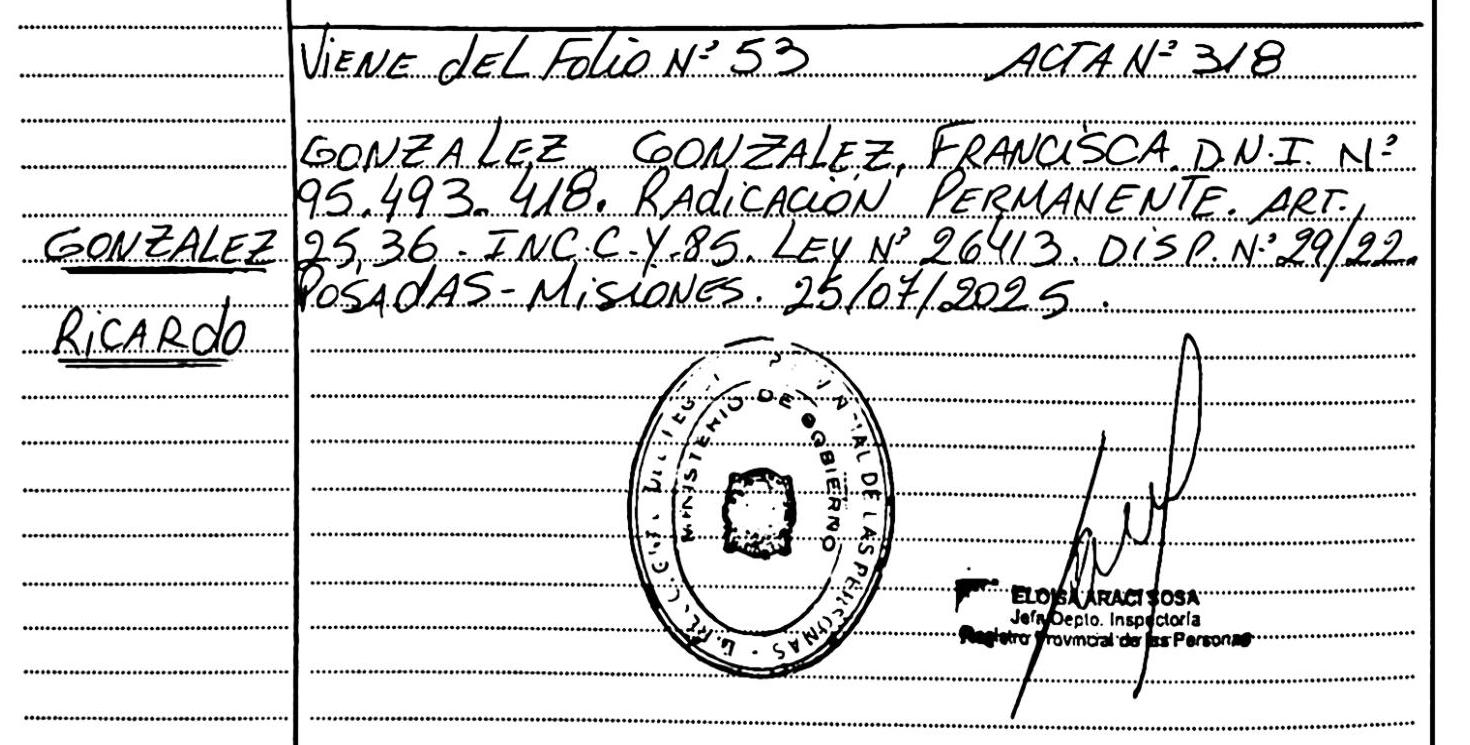 VIENE dEL FOLIO Nº 53 ACTA Nº 318
GONZALEZ GONZALEZ, FRANCISCA. D.N.I. Nº
95.493.418. RADICACIÓN PERMANENTE. ART.
GONZALEZ
25,36. INC.C.Y.85. LEY Nº 26413. DISP. Nº 29/22.
POSADAS-MISIONES. 25/07/2025.
RICARdO
MINISTERIO DE GOBIERNO
DE LAS PERSONAS
ELOISA ARACI SOSA
Jefa Depto. Inspectoría
Registro Provincial de las Personas